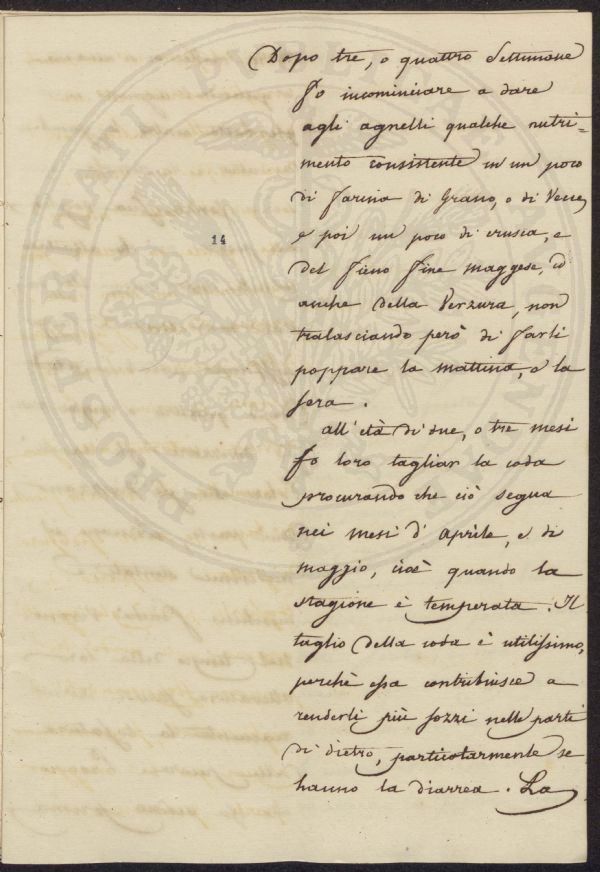 Dopo tre, o quattro Settimane
fo incominciare a dare
agli agnelli qualche nutri=
mento consistente in un poco
di farina di Grano, o di Vecce,
e poi un poco di crusca, e
14
del fieno fine maggese, ed
anche della Verzura, non
tralasciando però di farli
poppare la mattina, e la
sera.
all'età di due, o tre mesi
fo loro tagliar la coda
procurando che ciò segua
nei mesi d'aprile, e di
maggio, cioè quando la
stagione è temperata. Il
taglio della coda è utilissimo,
perchè essa contribuisce a
renderli più sozzi nelle parti
di dietro, particolarmente se
hanno la diarrea. La